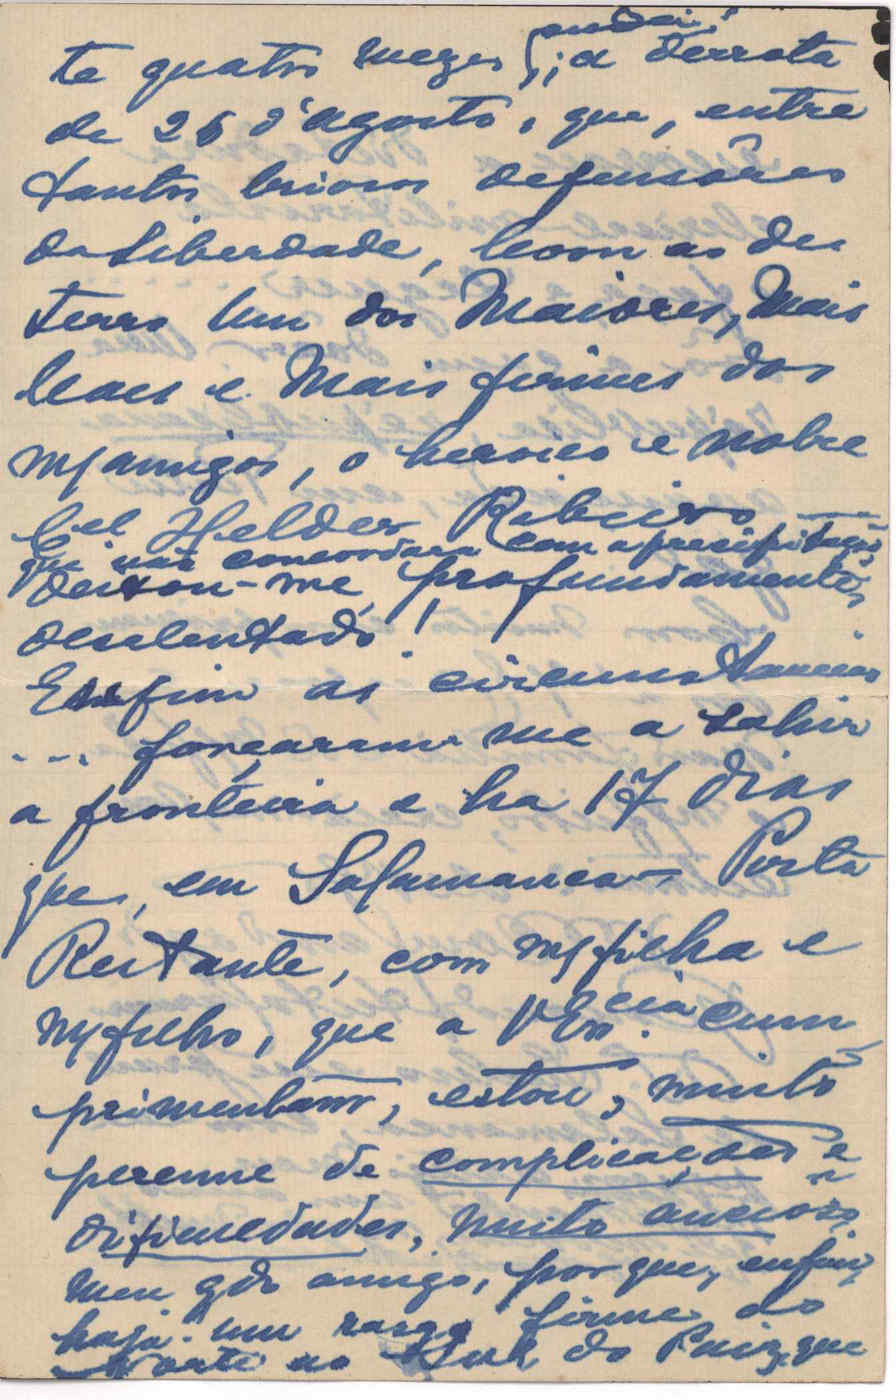 te quatro mezes; a derrota
de 26 d'agosto, que, entre
tantos briosos defensôres
da Liberdade, levou ao des
terro um dos Maiores, Mais
leaes e Mais firmes dos
m/amigos, o heroico e nobre
Cel Helder Ribeiro —
que não concordara com a precipitação,
deixou-me, profundamente,
desalentado!
Enfim as circumstancias
... forçaram me a sahir
a fronteira e ha 17 dias
que, em Salamanca - Posta
Restante, com m/filha e
m/filho, que a V Excia. cum
primentam, estou, muito
perenne de complicações e
dificuldades, muito ancioso,
meu gdo amigo, por que, enfim,
haja um rasgo firme do
Norte ao Sul do Paiz, que